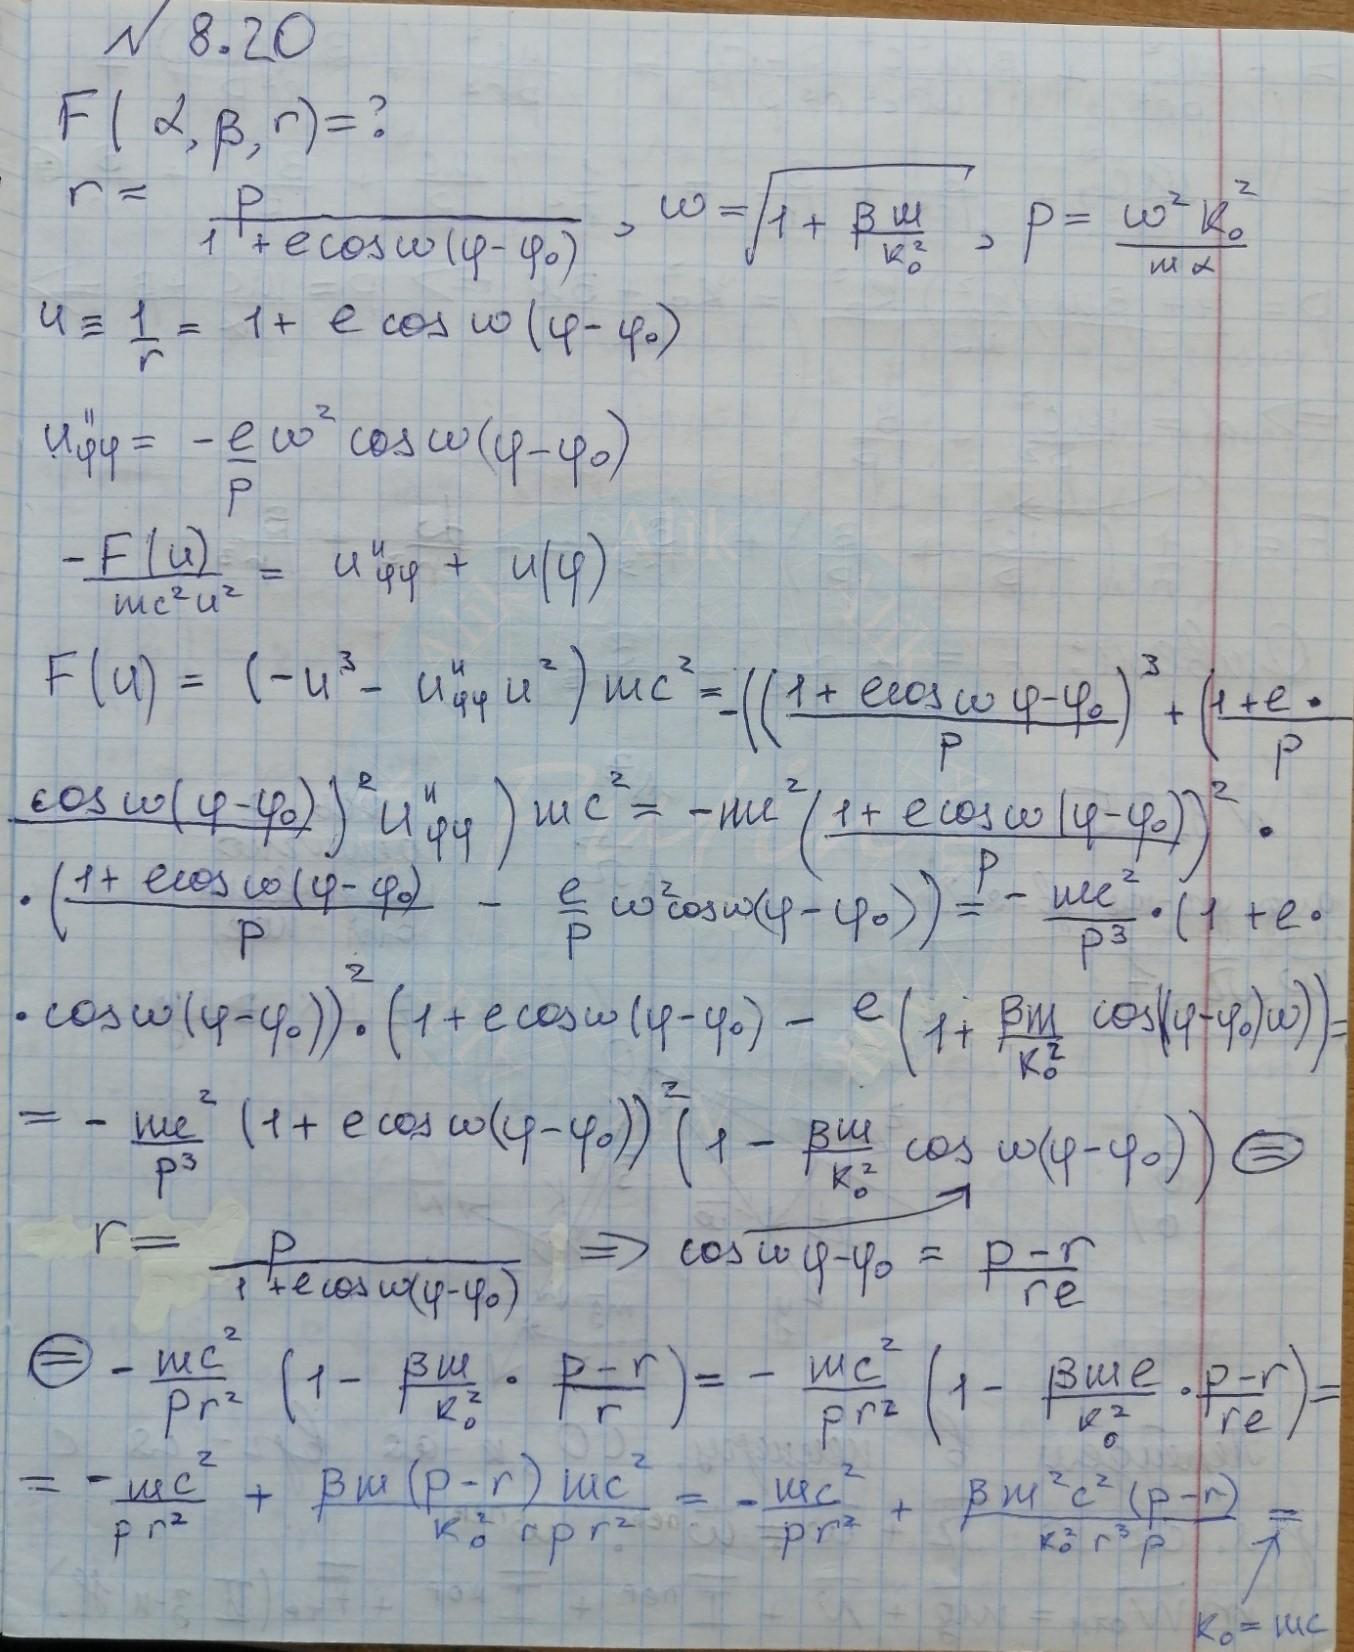 № 8.20
F(α, β, r)=?
r = p/(1+e cos ω(φ-φ₀)), ω = √(1 + βm/k₀²), p = ω²k₀²/mα
u ≡ 1/r = 1 + e cos ω(φ-φ₀)
u''φφ = - e/p ω² cos ω(φ-φ₀)
-F(u)/mc²u² = u''φφ + u(φ)
F(u) = (-u³ - u''φφ u²) mc² = -(((1+e cos ω φ-φ₀)/p)³ + (1+e·/p
cos ω(φ-φ₀))² u''φφ) mc² = -mc² ((1+e cos ω(φ-φ₀))/p)² ·
·((1+e cos ω(φ-φ₀))/p - e/p ω² cos ω(φ-φ₀)) = - mc²/p³ · (1+e·
·cos ω(φ-φ₀))² · (1+e cos ω(φ-φ₀) - e(1 + βm/k₀² cos((φ-φ₀)ω)) =
= - mc²/p³ (1+e cos ω(φ-φ₀))² (1 - βm/k₀² cos ω(φ-φ₀)) ⊜
r = p/(1+e cos ω(φ-φ₀)) ⇒ cos ω φ-φ₀ = (p-r)/re
⊜ - mc²/pr² (1 - βm/k₀² · (p-r)/r) = - mc²/pr² (1 - βme/k₀² · (p-r)/re) =
= - mc²/pr² + βm(p-r)mc²/k₀² r p r² = - mc²/pr² + βm²c²(p-r)/k₀² r³ p =
k₀ = mc